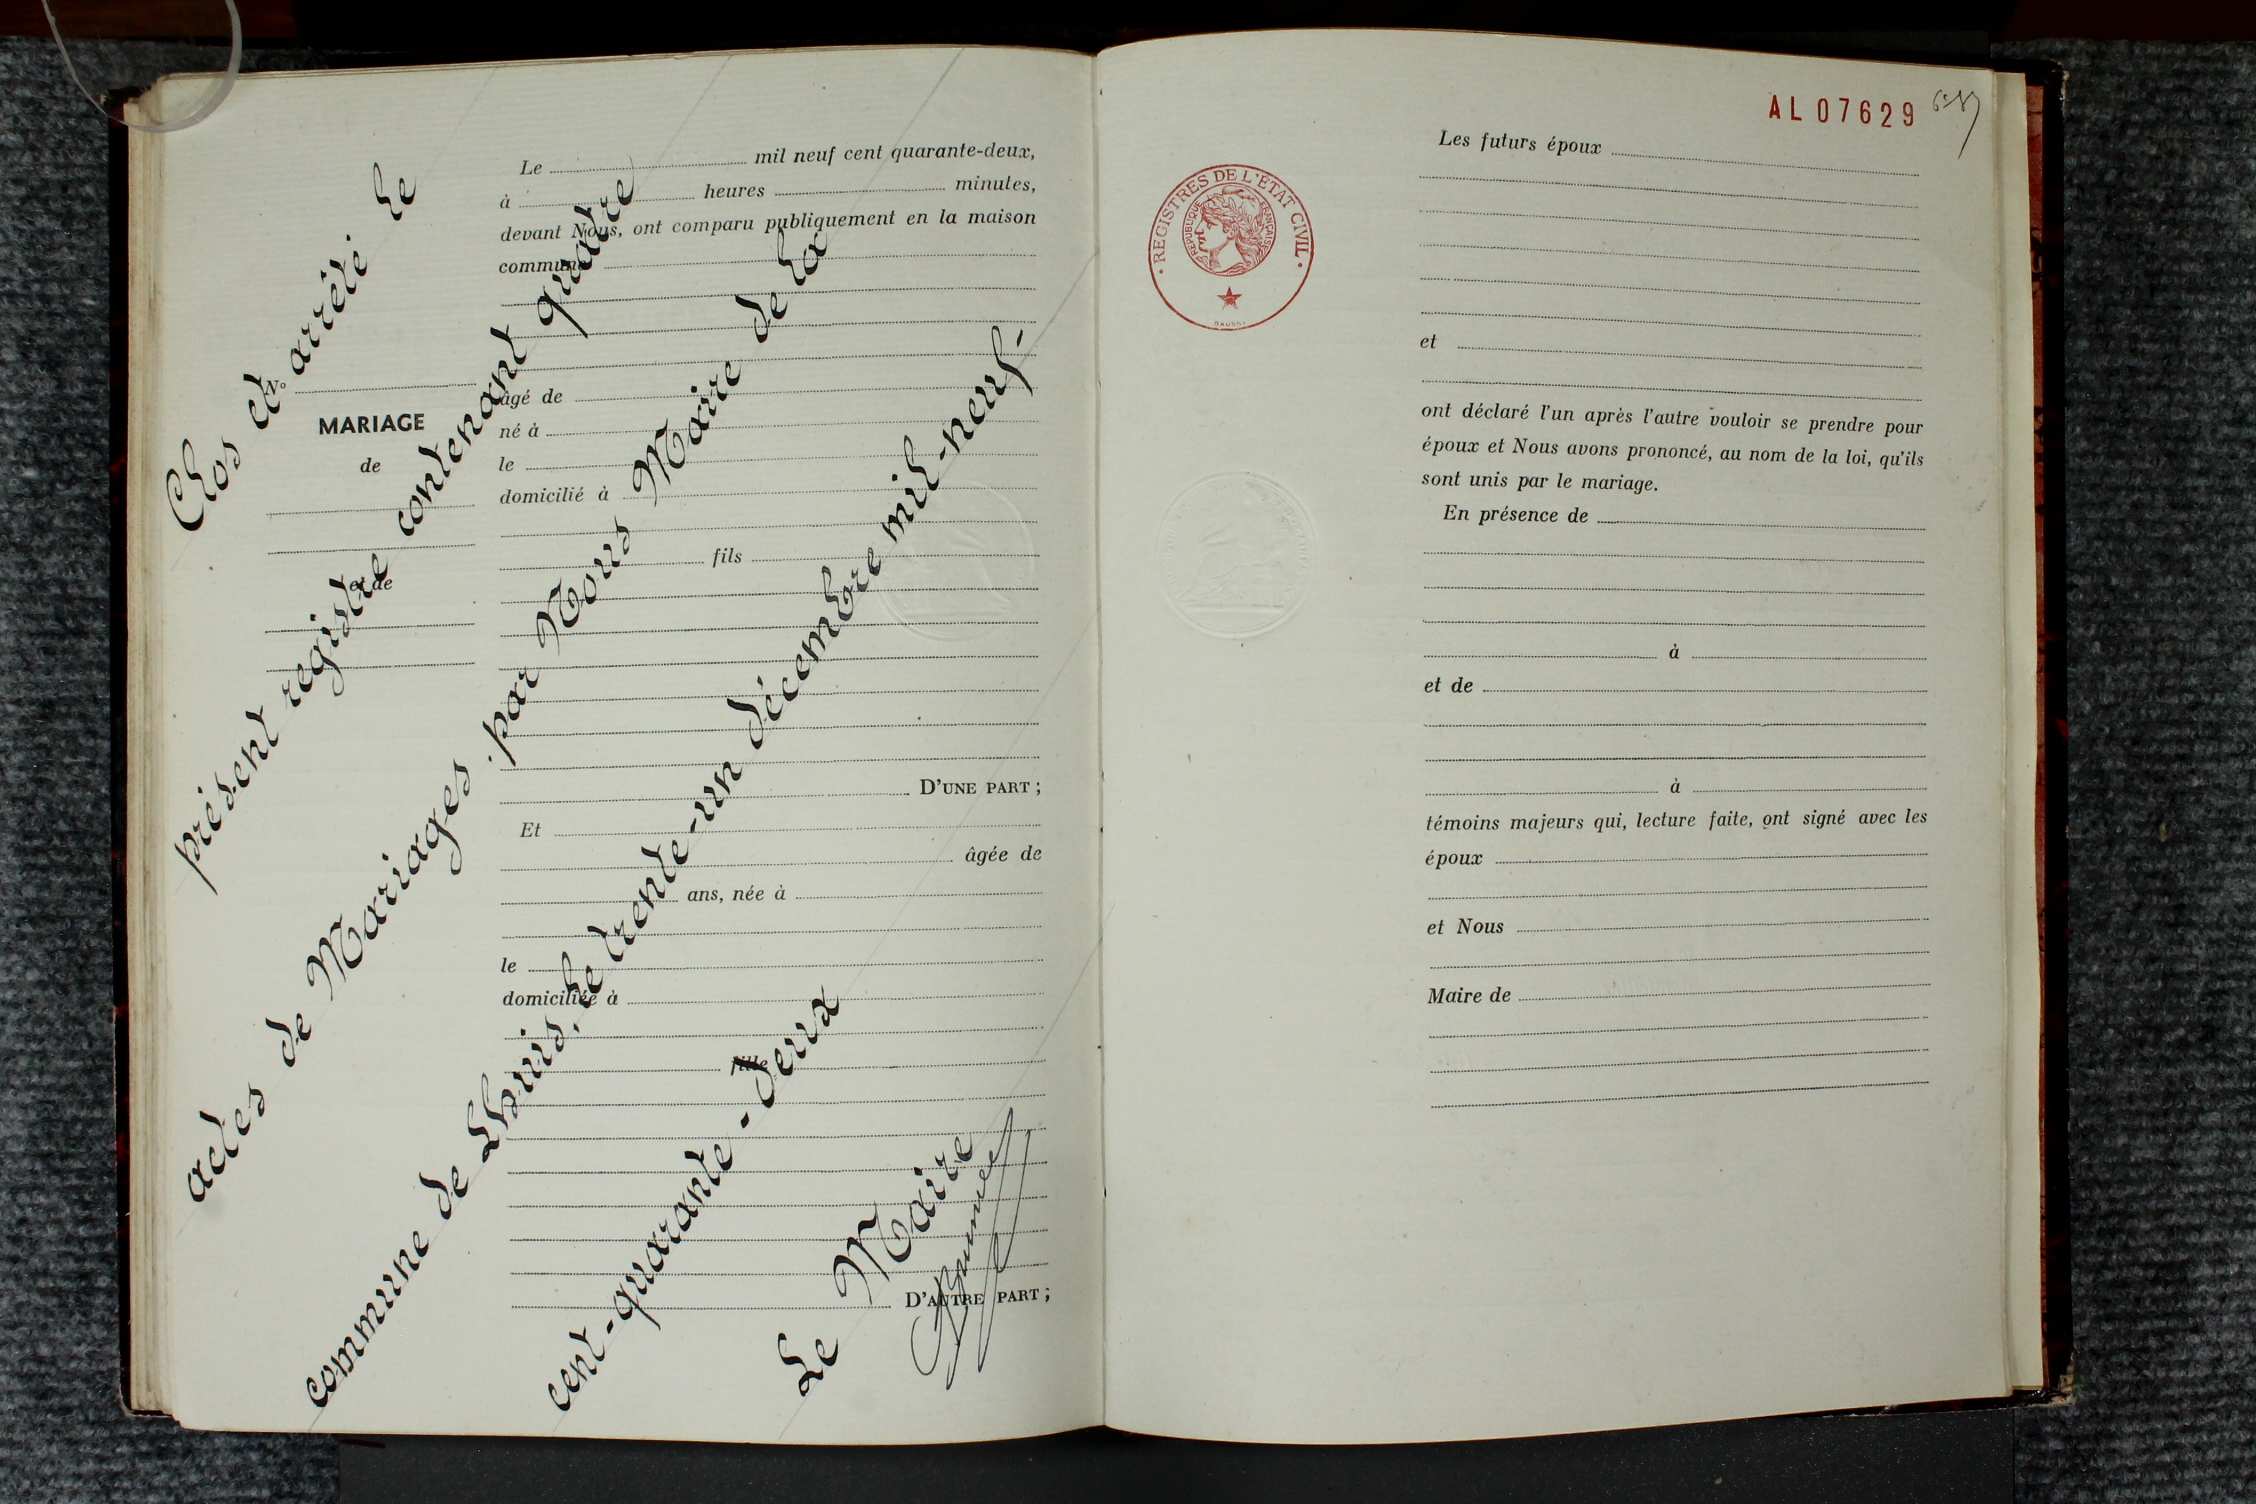 Le mil neuf cent quarante-deux,
à heures minutes,
devant Nous, ont comparu publiquement en la maison
commune
âgé de
né à
le
domicilié à
fils
D'UNE PART ;
Et
âgée de
ans, née à
le
domiciliée à
fille
D'AUTRE PART ;
N°
MARIAGE
de
et de
Clos et arrêté le
présent registre contenant quatre
actes de Mariages par Nous Maire de la
commune de Lhuis, le trente-un décembre mil-neuf-
cent-quarante-deux
Le Maire
AL 07629
REGISTRES DE L'ETAT CIVIL
REPUBLIQUE FRANÇAISE
Les futurs époux
et
ont déclaré l'un après l'autre vouloir se prendre pour
époux et Nous avons prononcé, au nom de la loi, qu'ils
sont unis par le mariage.
En présence de
à
et de
à
témoins majeurs qui, lecture faite, ont signé avec les
époux
et Nous
Maire de